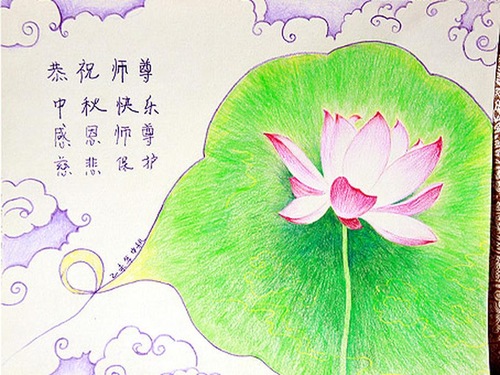 恭祝师尊
中秋快乐
感恩师尊
慈悲保护